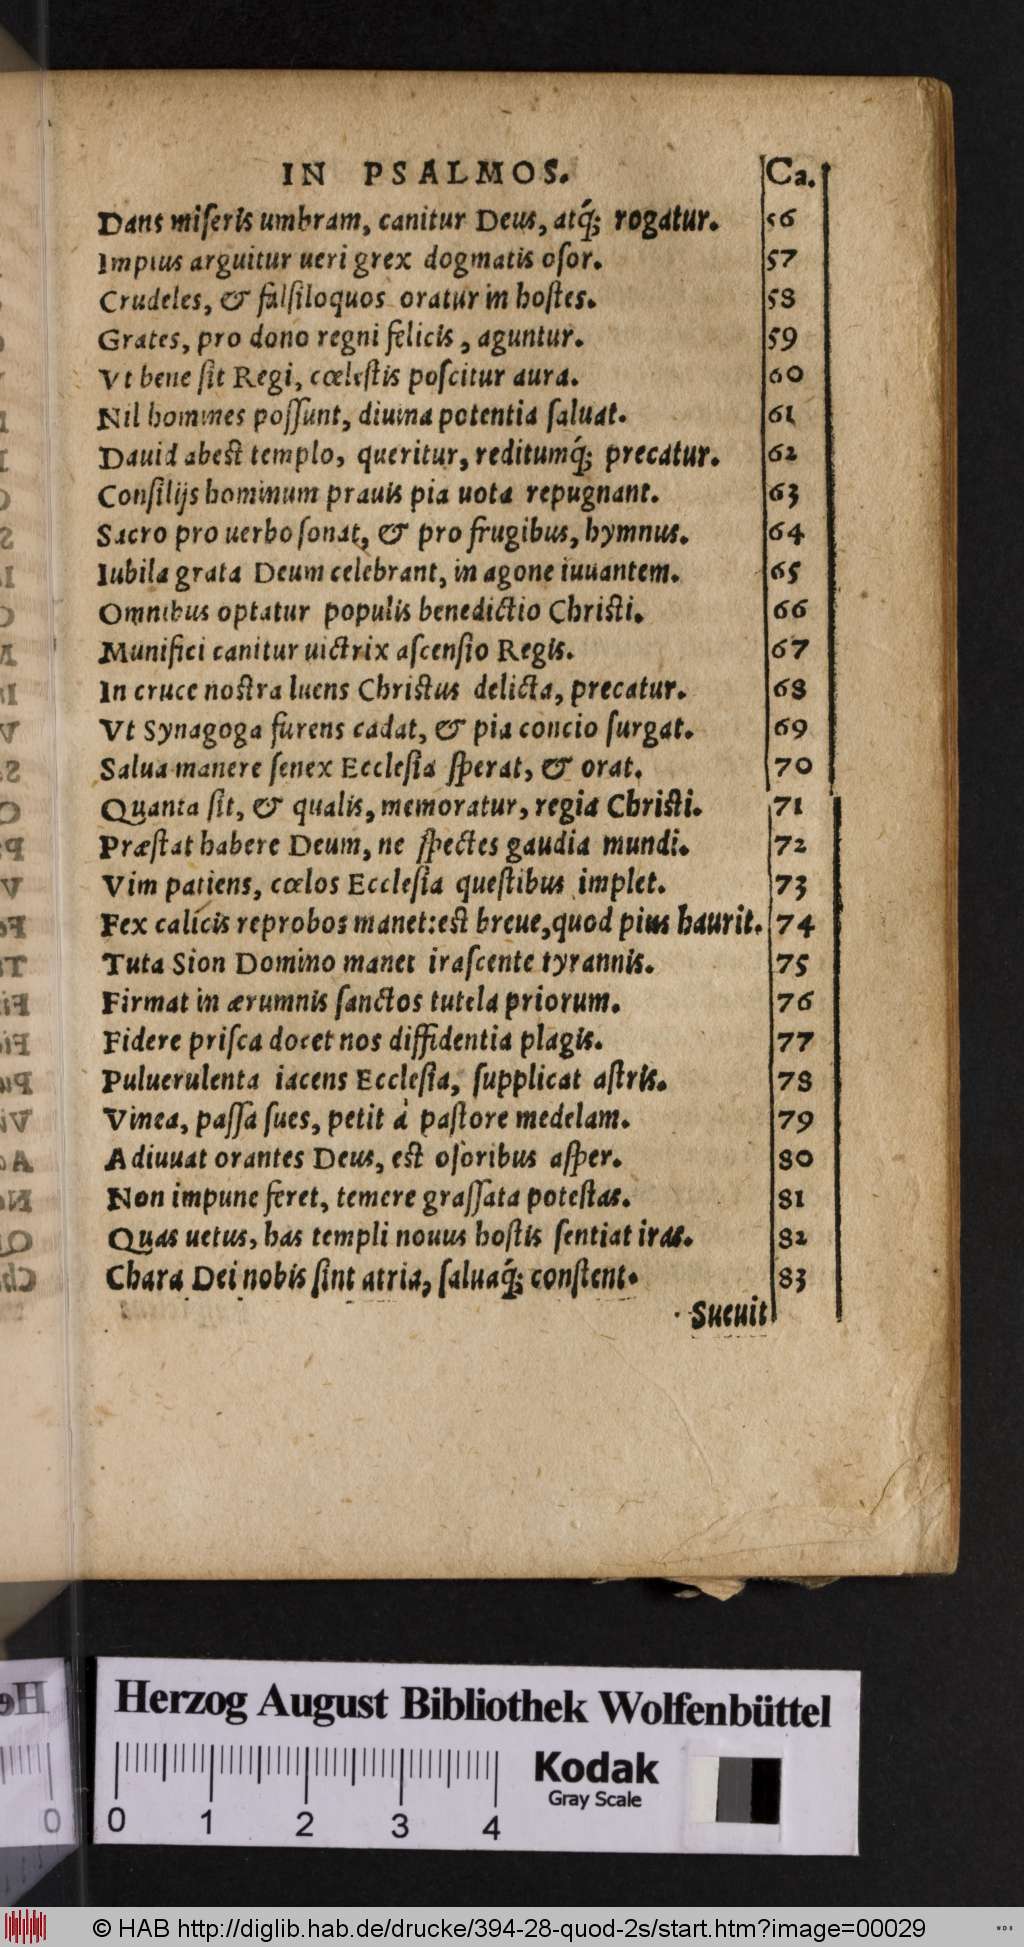 IN PSALMOS. Ca.
Dans miſeris umbram, canitur Deus, atq́; rogatur. 56
Impius arguitur ueri grex dogmatis oſor. 57
Crudeles, & falſiloquos oratur in hoſtes. 58
Grates, pro dono regni felicis, aguntur. 59
Vt bene ſit Regi, cœleſtis poſcitur aura. 60
Nil homines poſſunt, diuina potentia ſaluat. 61
Dauid abest templo, queritur, reditumq́; precatur. 62
Conſilijs hominum prauis pia uota repugnant. 63
Sacro pro uerbo ſonat, & pro frugibus, hymnus. 64
Iubila grata Deum celebrant, in agone iuuantem. 65
Omnibus optatur populis benedictio Chriſti. 66
Munifici canitur uictrix aſcenſio Regis. 67
In cruce noſtra luens Chriſtus delicta, precatur. 68
Vt Synagoga furens cadat, & pia concio ſurgat. 69
Salua manere ſenex Eccleſia ſperat, & orat. 70
Quanta ſit, & qualis, memoratur, regia Chriſti. 71
Præſtat habere Deum, ne ſpectes gaudia mundi. 72
Vim patiens, cœlos Eccleſia queſtibus implet. 73
Fex calicis reprobos manet: est breue, quod pius haurit. 74
Tuta Sion Domino manet iraſcente tyrannis. 75
Firmat in ærumnis ſanctos tutela priorum. 76
Fidere priſca docet nos diffidentia plagis. 77
Puluerulenta iacens Eccleſia, ſupplicat aſtris. 78
Vinea, paſſa ſues, petit à paſtore medelam. 79
Adiuuat orantes Deus, est oſoribus aſper. 80
Non impune feret, temere graſſata poteſtas. 81
Quas uetus, has templi nouus hoſtis ſentiat iras. 82
Chara Dei nobis ſint atria, ſaluaq́; conſtent. 83
Sueuit
Herzog August Bibliothek Wolfenbüttel
Kodak
Gray Scale
0 0 1 2 3 4
© HAB http://diglib.hab.de/drucke/394-28-quod-2s/start.htm?image=00029